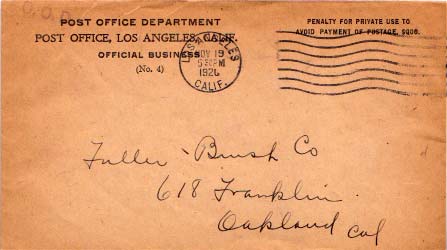 POST OFFICE DEPARTMENT
POST OFFICE, LOS ANGELES, CALIF.
OFFICIAL BUSINESS
(No. 4)
LOS ANGELES
NOV 19
5 PM
1926
CALIF.
PENALTY FOR PRIVATE USE TO
AVOID PAYMENT OF POSTAGE, $300.
Fuller Brush Co
618 Franklin
Oakland Cal